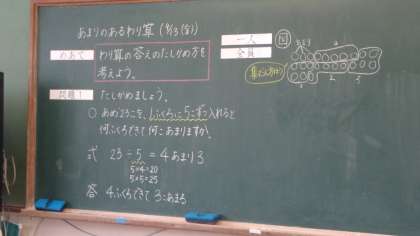 あまりのあるわり算 (9/3 (金))
めあて
わり算の答えのたしかめ方を
考えよう。
問題1
たしかめましょう。
○ あめ23こを、1ふくろに5こずつ入れると
何ふくろできて何こあまりますか。
式 23÷5=4あまり3
5×4=20
5×5=25
答 4ふくろできて3こあまる
一人
全員
図
あまり
1
2
3